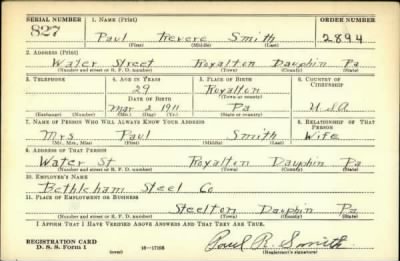 SERIAL NUMBER 1. NAME (Print) ORDER NUMBER
827 Paul Revere Smith 2894
(First) (Middle) (Last)
2. ADDRESS (Print)
Water Street Royalton Dauphin Pa
(Number and street or R. F. D. number) (Town) (County) (State)
3. TELEPHONE 4. AGE IN YEARS 5. PLACE OF BIRTH 6. COUNTRY OF CITIZENSHIP
29 Royalton
DATE OF BIRTH (Town or county)
Mar 2 1911 Pa USA
(Exchange) (Number) (Mo.) (Day) (Yr.) (State or country)
7. NAME OF PERSON WHO WILL ALWAYS KNOW YOUR ADDRESS 8. RELATIONSHIP OF THAT PERSON
Mrs Paul Smith Wife
(Mr., Mrs., Miss) (First) (Middle) (Last)
9. ADDRESS OF THAT PERSON
Water St Royalton Dauphin Pa
(Number and street or R. F. D. number) (Town) (County) (State)
10. EMPLOYER'S NAME
Bethleham Steel Co
11. PLACE OF EMPLOYMENT OR BUSINESS
Steelton Dauphin Pa
(Number and street or R. F. D. number) (Town) (County) (State)
I AFFIRM THAT I HAVE VERIFIED ABOVE ANSWERS AND THAT THEY ARE TRUE.
REGISTRATION CARD
D. S. S. Form 1 (over) Paul R. Smith
(Registrant's signature)